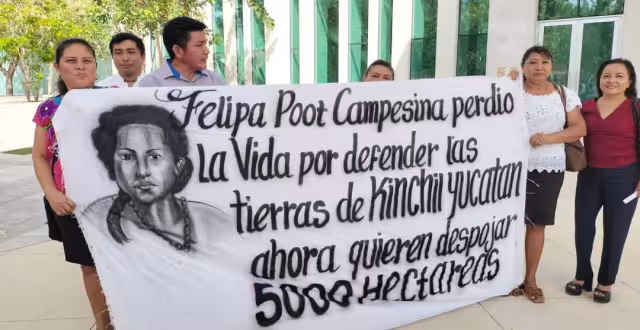 Felipa Poot Campesina perdio
La Vida por defender las
tierras de Kinchil yucatan
ahora quieren despojar
5000 Hectareas